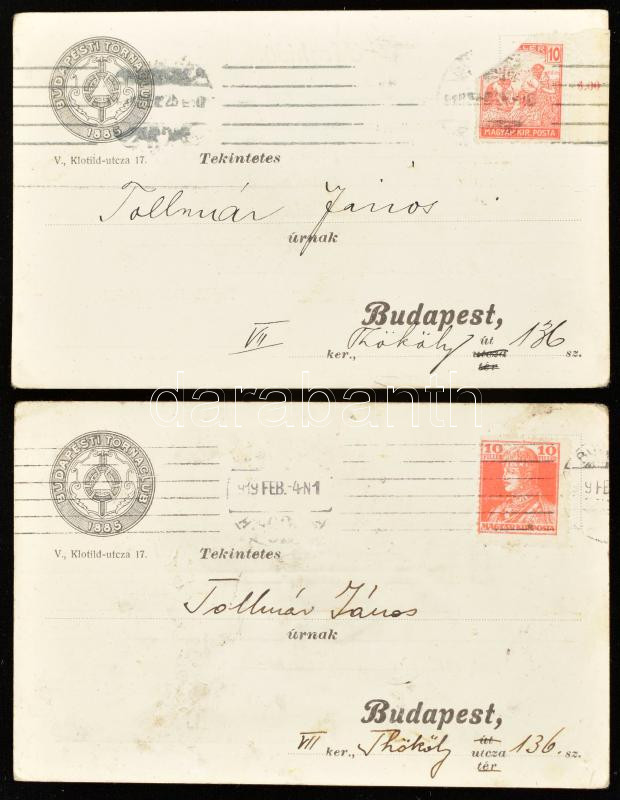 BUDAPESTI TORNACLUB
1885
V., Klotild-utcza 17.
10
MAGYAR KIR. POSTA
Tekintetes
Tollmár János
úrnak
Budapest,
VII ker., Thököly út utcza tér 136 sz.
darabanth
BUDAPESTI TORNACLUB
1885
V., Klotild-utcza 17.
919 FEB.-4.N1
10 10
MAGYAR KIR. POSTA
Tekintetes
Tollmár János
úrnak
Budapest,
VII ker., Thököly út utcza tér 136. sz.